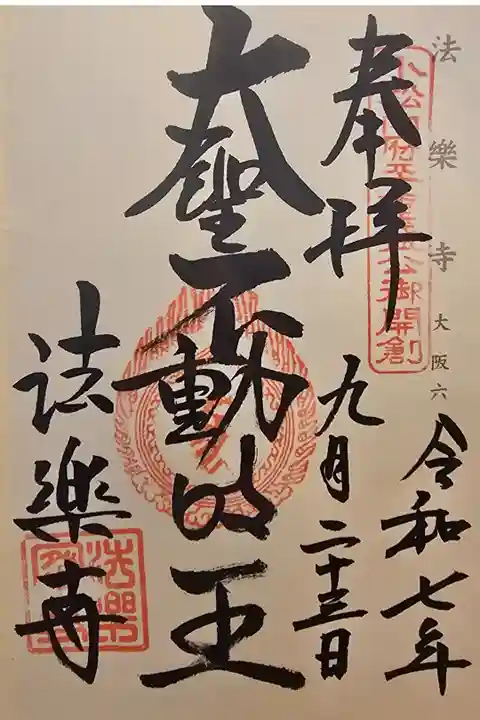 法樂寺 大阪六
奉拝
小松内府平重盛公御開創
令和七年
九月二十三日
大聖不動明王
法楽寺